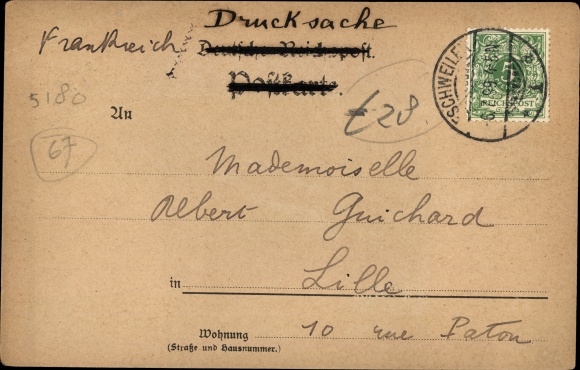 Drucksache
Frankreich
Deutsche Reichspost.
Postkarte.
5180
67
€28
An
ESCHWEILE
REICHSPOST
Mademoiselle
Albert Guichard
in Lille
Wohnung 10 rue Paton
(Straße und Hausnummer.)